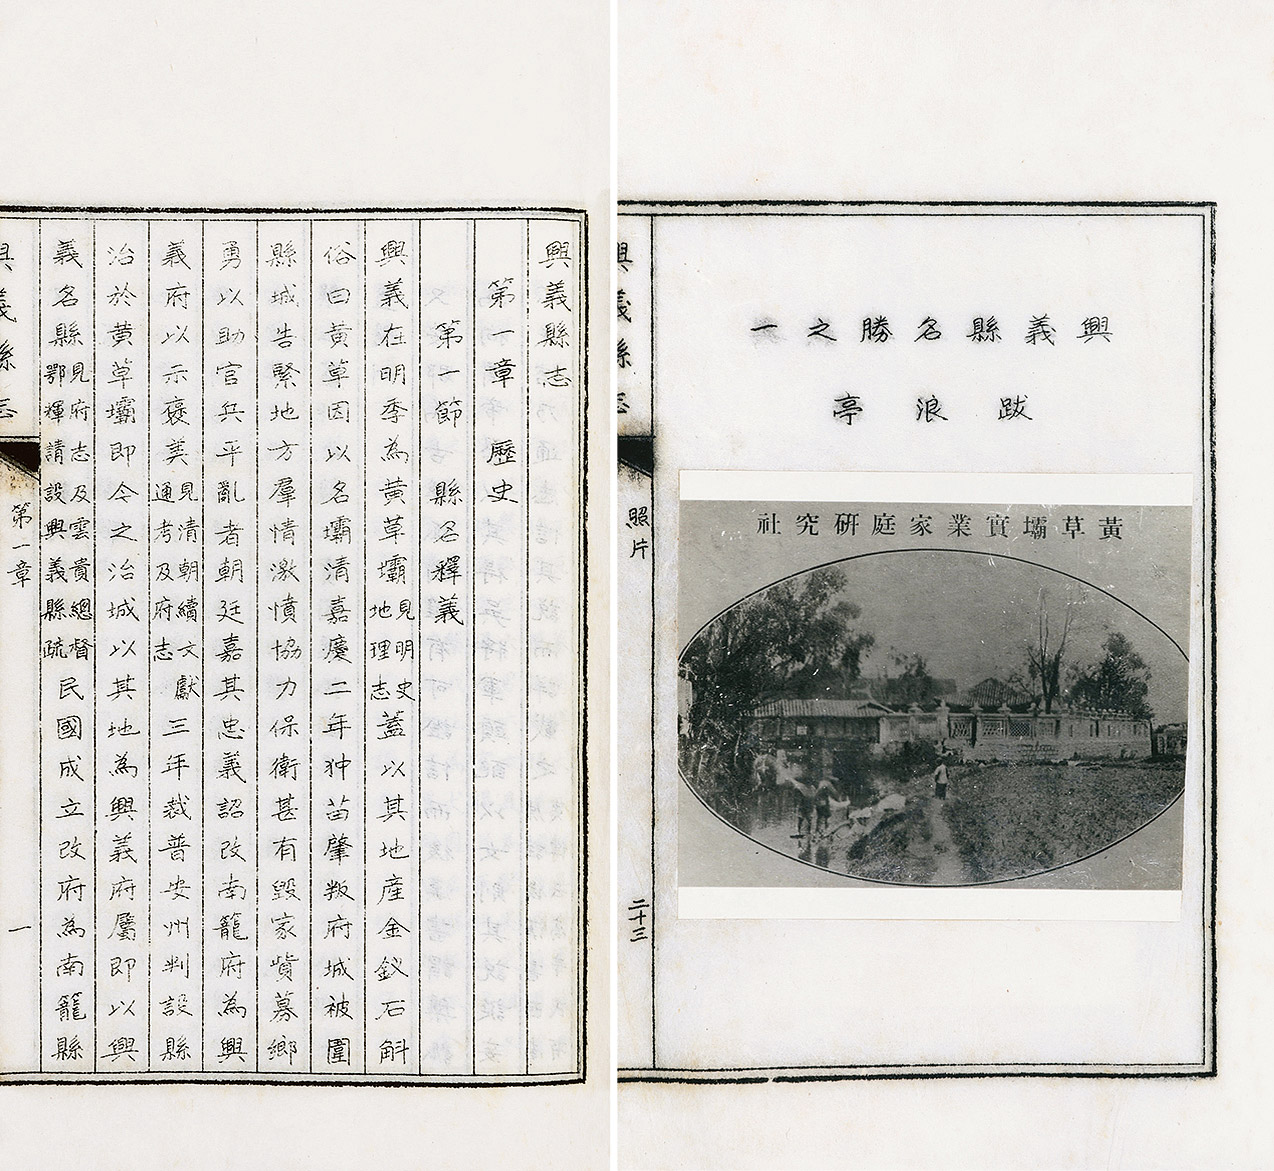 興義縣名勝之一
跋浪亭
黃草壩實業家庭研究社
興義縣志
照片
二十三
興義縣志
第一章 歷史
第一節 縣名釋義
興義在明季為黃草壩見明史地理志蓋以其地產金釵石斛
俗曰黃草因以名壩清嘉慶二年狆苗肇叛府城被圍
縣城告緊地方羣情激憤協力保衛甚有毀家貲募鄉
勇以助官兵平亂者朝廷嘉其忠義詔改南籠府為興
義府以示褒美見清朝續文獻通考及府志三年裁普安州判設縣
治於黃草壩即今之治城以其地為興義府屬即以興
義名縣見府志及雲貴總督鄂輝請設興義縣疏民國成立改府為南籠縣
興義縣志
第一章
一